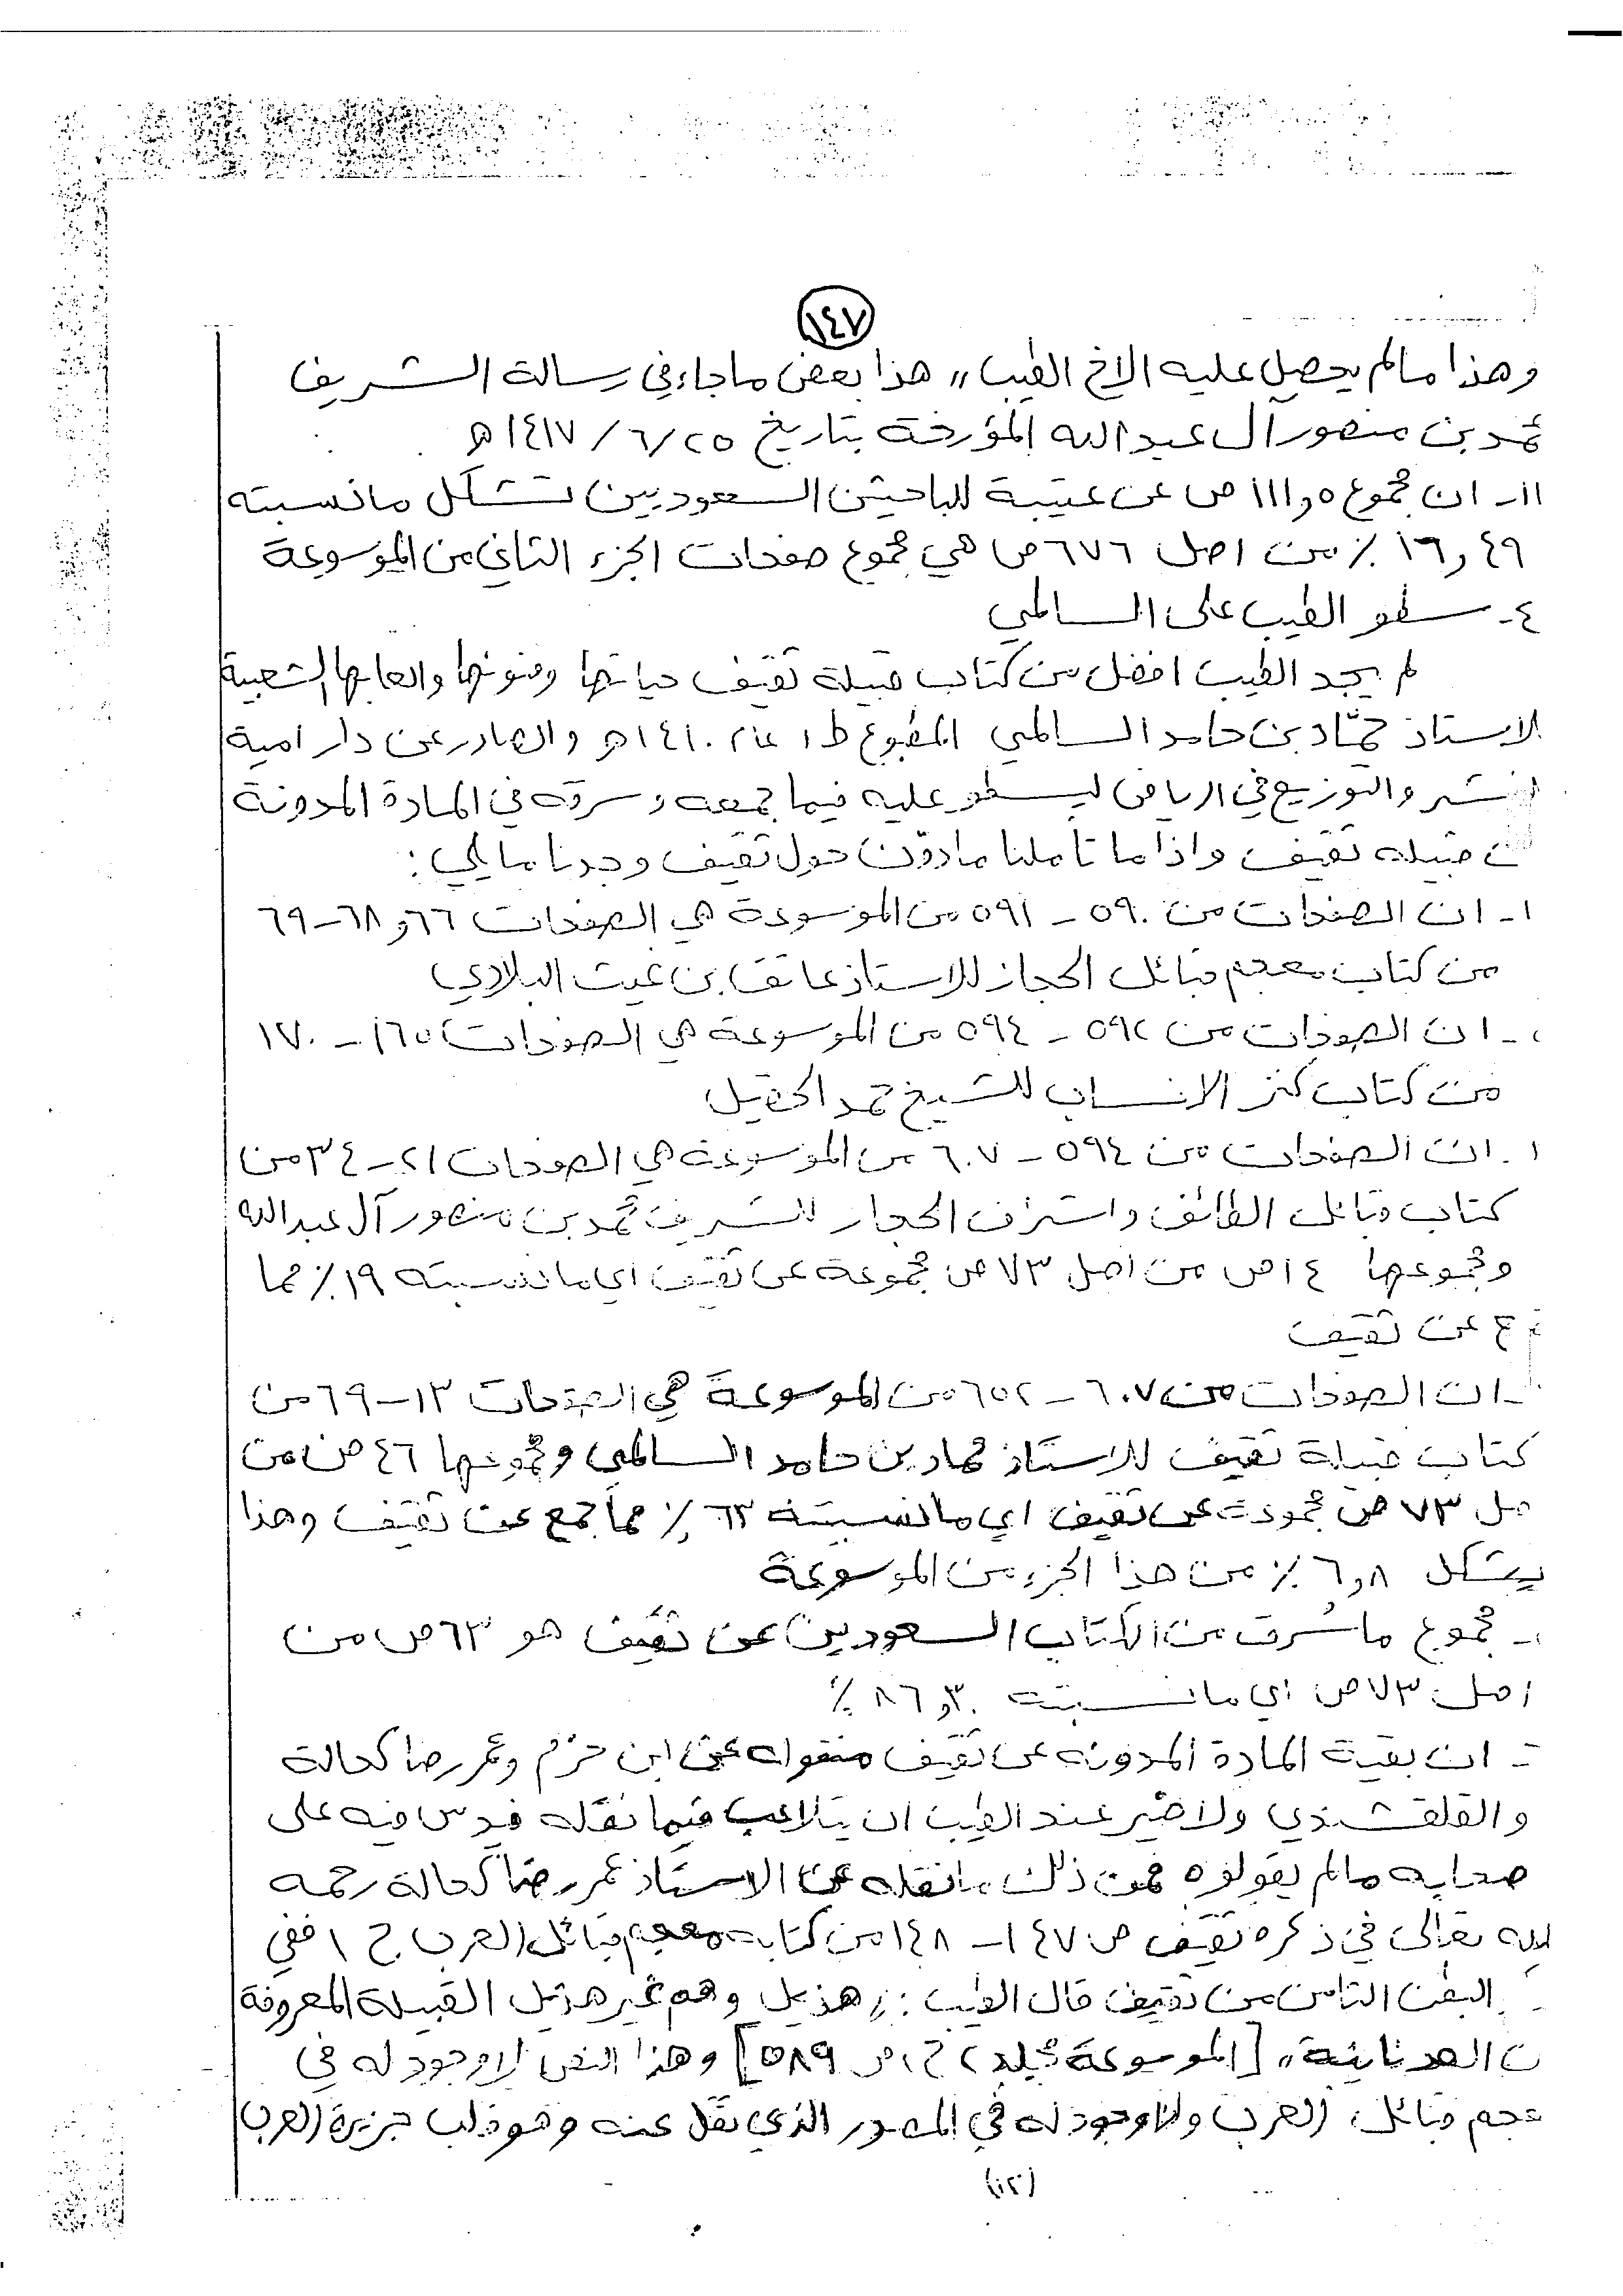 ١٤٧
وهذا مالم يحصل عليه الاخ الطيب،، هذا بعض ماجاء في رسالة الشريف
محمد بن منصور آل عبدالله المؤرخة بتاريخ ٢٥/٦/١٤١٧هـ
١١- ان مجموع ١١١,٥ ص عن عتيبة للباحثين السعوديين تشكل مانسبته
١٦,٤٩ ٪ من اصل ٦٧٦ ص هي مجموع صفحات الجزء الثاني من الموسوعة
٤- سطو الطيب على السالمي
لم يجد الطيب افضل من كتاب قبيلة ثقيف حياتها وفنونها والعابها الشعبية
للاستاذ حمّاد بن حامد السالمي المطبوع ط١ عام ١٤١٠هـ والصادر عن دار امية
للنشر والتوزيع في الرياض ليسطو عليه فيما جمعه وسرقه في المادة المدونة
عن قبيلة ثقيف واذا ما تأملنا مادوّن حول ثقيف وجدنا مايلي:
١- ان الصفحات من ٥٩٠ - ٥٩١ من الموسوعة هي الصفحات ٦٦ و ٦٨-٦٩
من كتاب معجم قبائل الحجاز للاستاذ عاتق بن غيث البلادي
- ان الصفحات من ٥٩٢ - ٥٩٤ من الموسوعة هي الصفحات ١٦٥ - ١٧٠
من كتاب كنز الانساب للشيخ حمد الحقيل
- ان الصفحات من ٥٩٤ - ٦٠٧ من الموسوعة هي الصفحات ٢١-٣٤ من
كتاب قبائل الطائف واشراف الحجاز للشريف محمد بن منصور آل عبدالله
ومجموعها ١٤ ص من اصل ٧٣ ص مجموعة عن ثقيف اي مانسبته ١٩٪ مما
جمع عن ثقيف
- ان الصفحات من ٦٠٧ - ٦٥٢ من الموسوعة هي الصفحات ١٣-٦٩ من
كتاب قبيلة ثقيف للاستاذ حماد بن حامد السالمي ومجموعها ٤٦ ص من
اصل ٧٣ ص مجموعة عن ثقيف اي مانسبته ٦٣ ٪ مما جمع عن ثقيف وهذا
يشكل ٦,٨ ٪ من هذا الجزء من الموسوعة
- مجموع ماسُرق من الكتاب السعوديين عن ثقيف هو ٦٣ ص من
اصل ٧٣ ص اي مانسبته ٨٦,٣٠ ٪
- ان بقية المادة المدونه عن ثقيف منقوله عن ابن حزم وعمر رضا كحالة
والقلقشندي ولاضير عند الطيب ان يتلاعب فيما نقله فيدس فيه على
اصحابه مالم يقولوه فمن ذلك مانقله عن الاستاذ عمر رضا كحالة رحمه
الله تعالى في ذكره ثقيف ص ١٤٧-١٤٨ من كتابه معجم قبائل العرب ج ١ ففي
البطن الثامن من ثقيف قال الطيب: ,,هذيل وهم غير هذيل القبيلة المعروفة
من العدنانية،، [الموسوعة مجلد ٢ ج ١ ص ٥٨٩] وهذا النص لاوجود له في
معجم قبائل العرب ولاوجود له في المصدر الذي نقل عنه وهو قلب جزيرة العرب
(١٢٠)